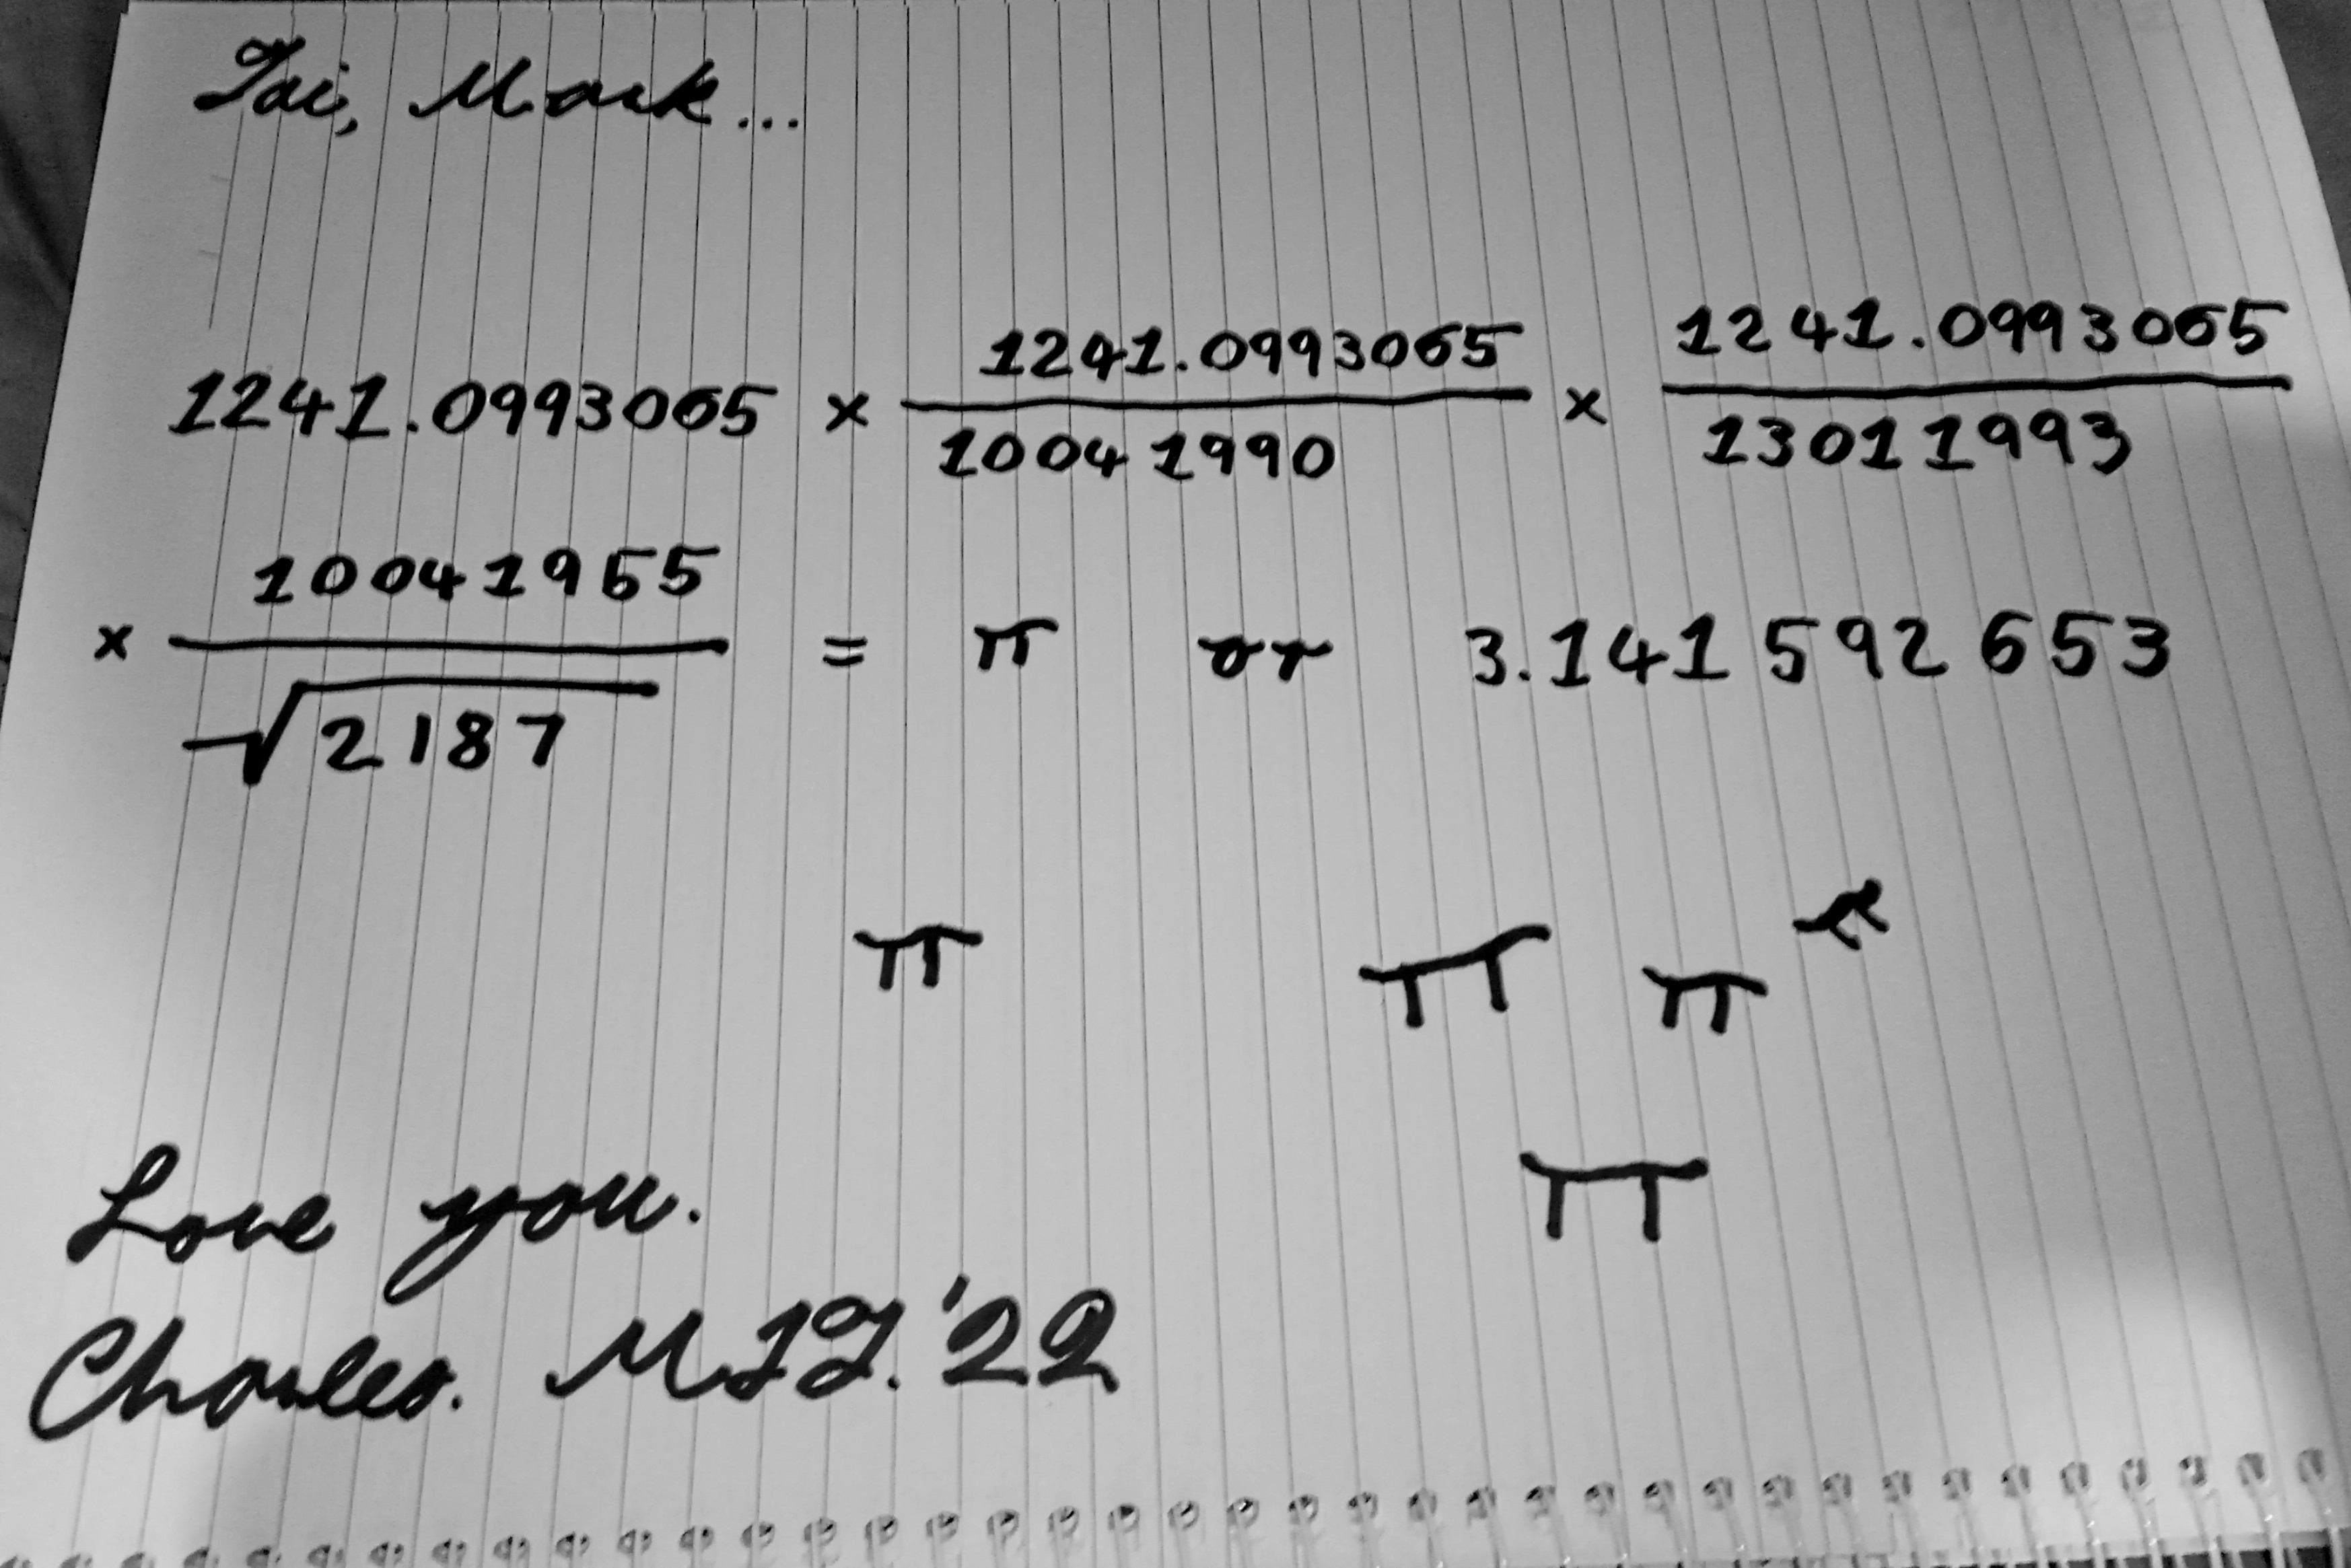 Tai, Mark...
1241.0993065 × 1241.0993065 / 10041990 × 1241.0993065 / 13011993
× 10041955 / √2187 = π or 3.141592653
π π π π
π
Love you.
Charles. MJJ.'22